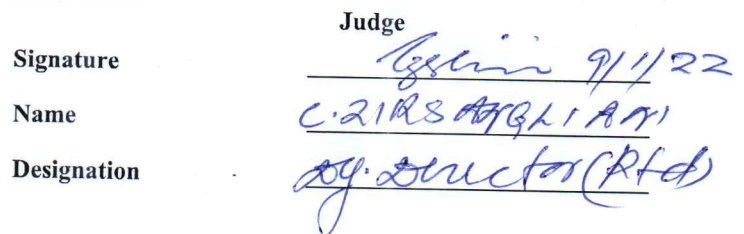 Judge
Signature 9/1/22
Name C. ZIRSANGLIANI
Designation Dy. Director (Rtd)